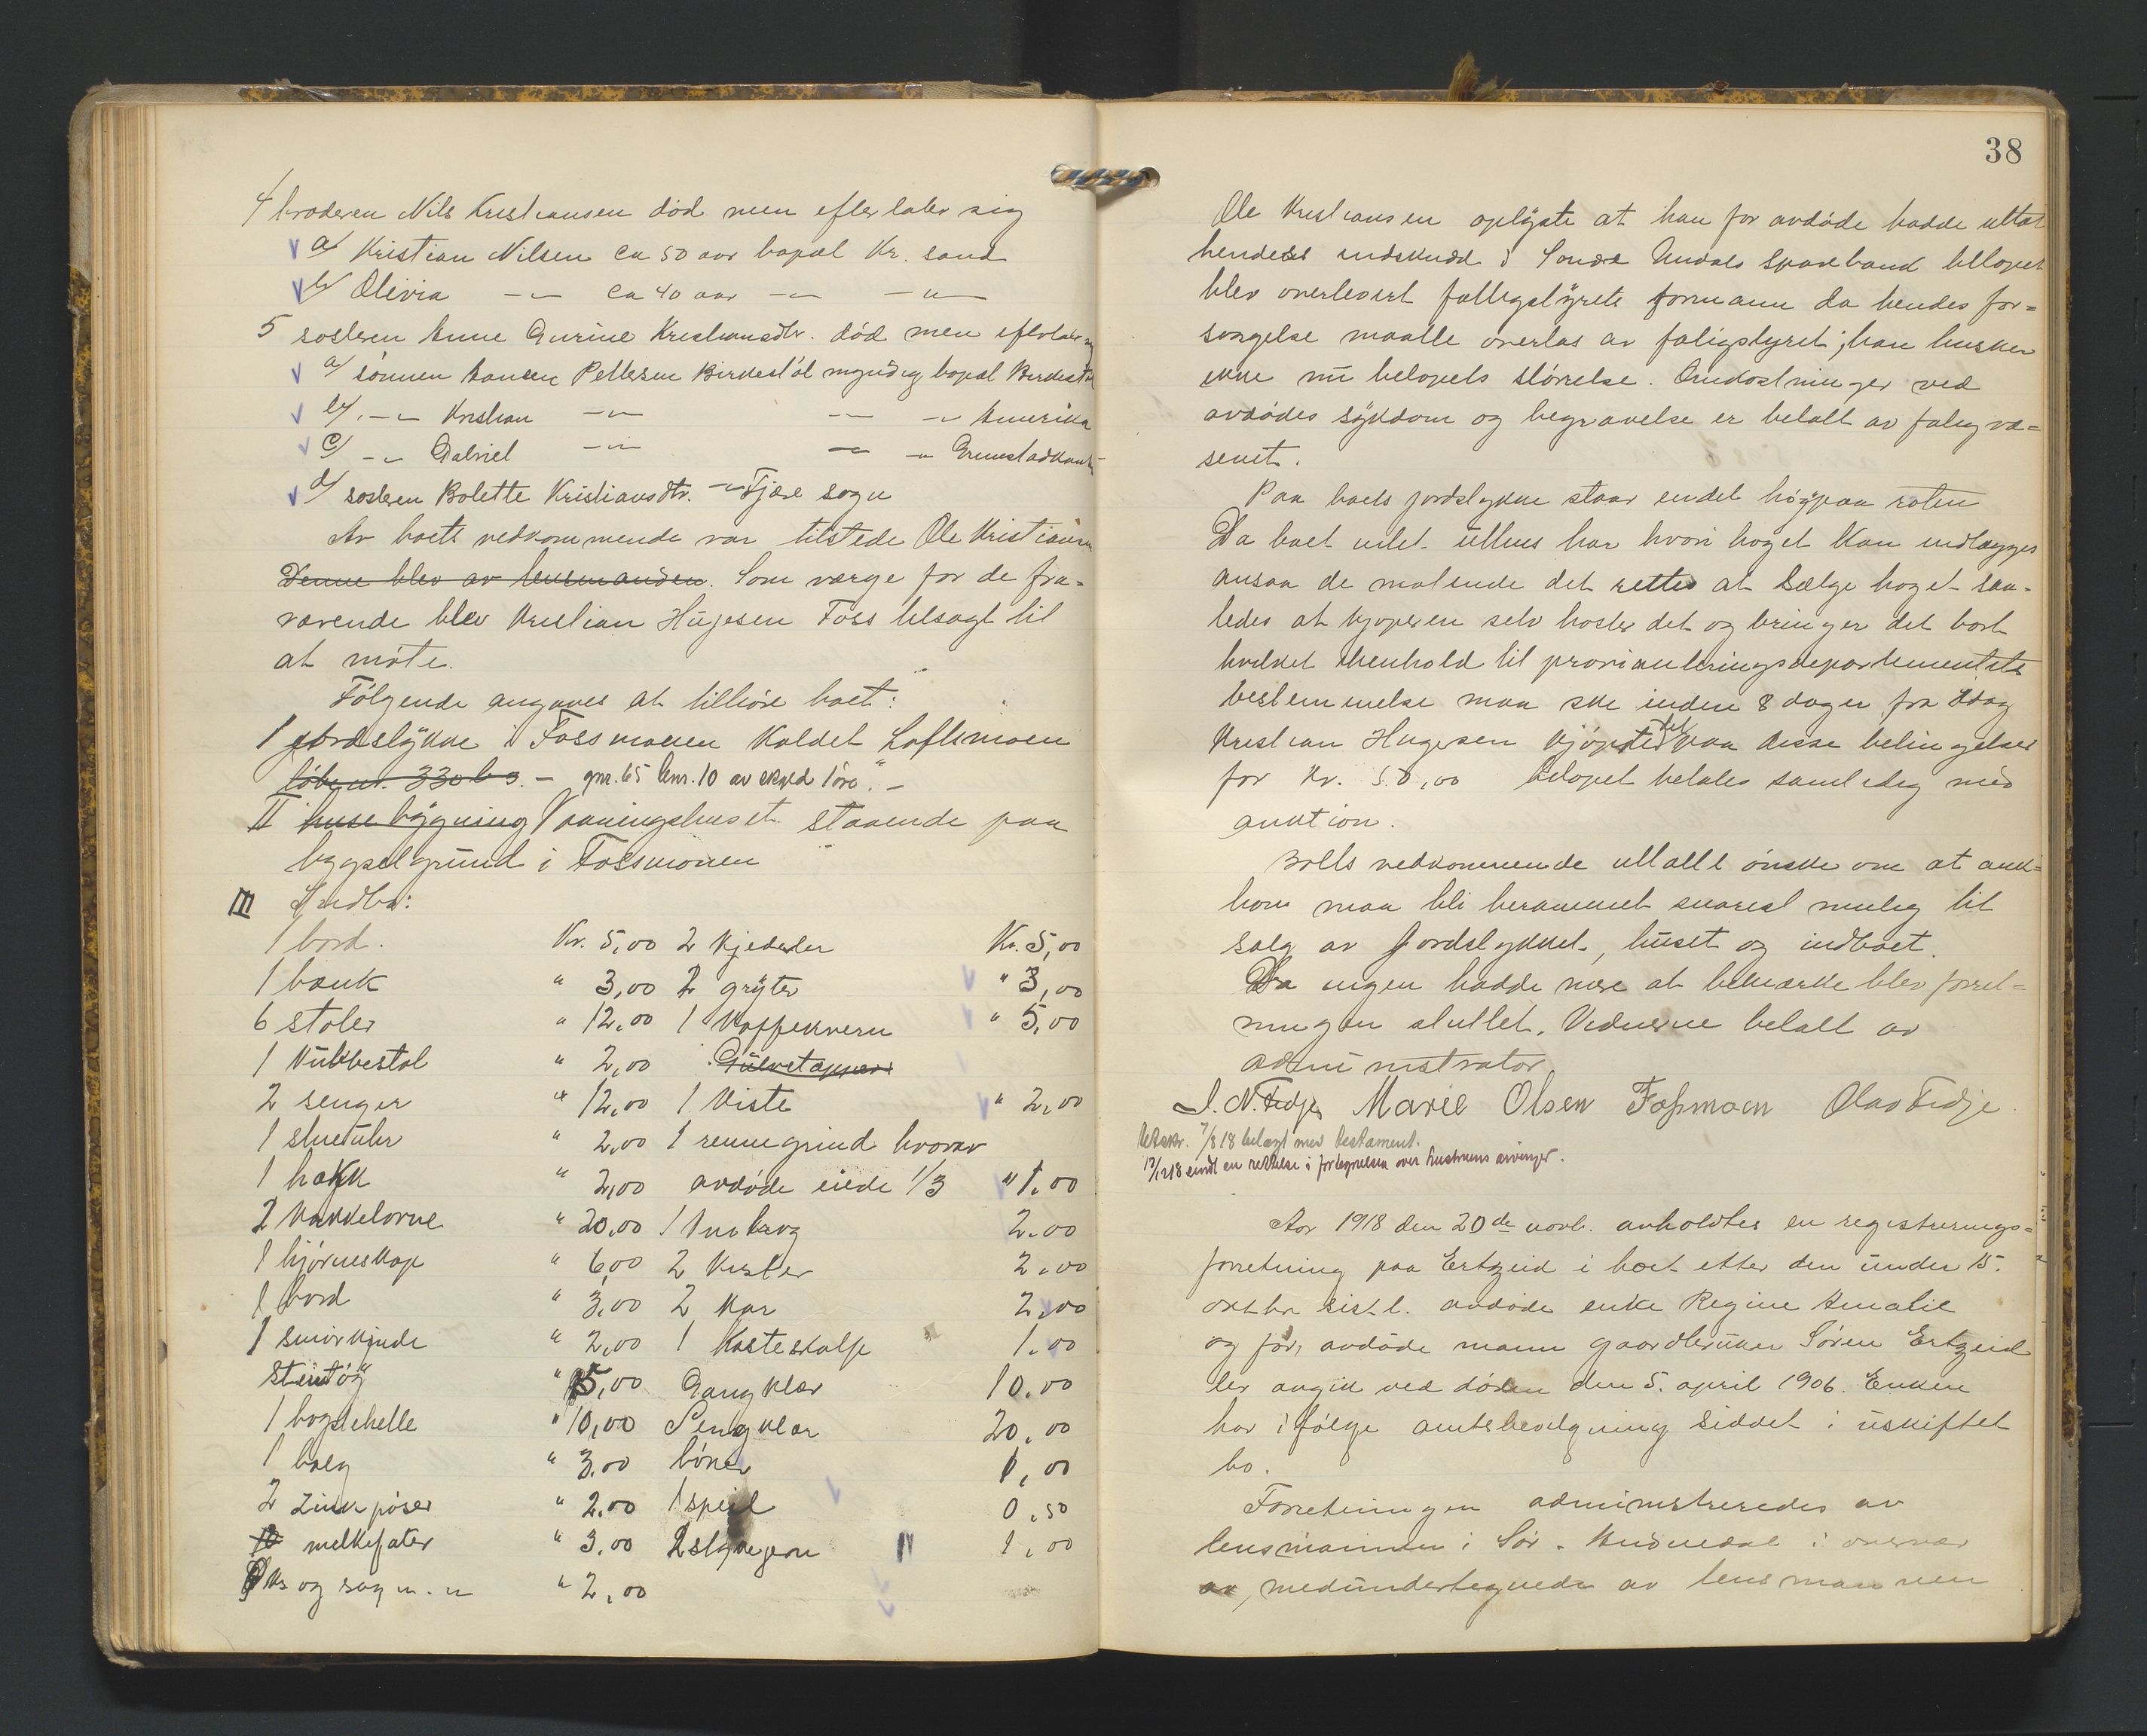 4 broderen Nils Kristiansen död men efterlater sig
a/ Kristian Nilsen ca 50 aar bopæl Kr. sand
b/ Olivia -"- ca 40 aar -"- -"-
5 søsteren Anne Gurine Kristiansdtr. död men efterlater sig
a/ sönnen Hansen Pettersen Birkestöl myndig bopæl Birkestöl
b/. -"- Kristian -"- -"- -"- Amerika
c/ -"- Gabriel -"- -"- -"- Grimstadkant
d/ søsteren Bolette Kristiansdtr. -"- Fjære sogn
Av boets vedkommende var tilstede Ole Kristiansen
Denne blev av lensmanden. Som værge for de fra-
værende blev Kristian Hugesen Foss tilsagt til
at möte.
Følgende angaves at tilhöre boet:
I jordstykke i Fossmoen kaldet Loftsmoen
löbenr. 330 b 3. - gnr. 65 bnr. 10 av skyld 1 öre. -
II huse bygning Vaaningshuset staaende paa
bygselgrund i Fossmoen
III Indbo:
1 bord. Kr. 5,00 2 kjedeler Kr. 5,00
1 bænk " 3,00 2 gryter " 3,00
6 stoler " 12,00 1 kaffekvern " 5,00
1 kubbestol " 2,00 Gulvtepper
2 senger " 12,00 1 kiste " 2,00
1 stueuhr " 2,00 1 rennegrind hvorav
1 hakk " 2,00 avdöde eiede 1/3 " 1.00
2 kakkelovne " 20,00 1 2.00
1 hjörneskap " 6,00 2 kister 2,00
1 bord " 3,00 2 kar 2,00
1 smörkinde " 2,00 1 1.00
Stentöy " 15,00 Gangklær 10.00
1 bogstehelle " 10,00 Sengklær 20,00
1 balg " 3.00 böker 1,00
2 zink pöser " 2.00 1 speil 0,50
10 melkefater " 3,00 2 strykejern 1,00
öks og sag m. m " 2,00
38
Ole Kristiansen oplyste at han for avdöde hadde uttat
hendes indskudd i Söndre Undals Sparebank belöpet
blev overlevert fattigstyrets formann da hendes for-
sørgelse maatte overtas av fatigstyret; han husker
ikke nu belöpets störrelse. Omkostninger ved
avdödes sykdom og begravelse er betalt av fatigvæ-
senet.
Paa boets jordstykke staar endel höy paa roten
Da boet intet uthus har hvori höyet kan indlægges
ansaa de mötende det rettes at sælge höyet saa-
ledes at kjöperen selv höster det og bringer det bort
hvilket ihenhold til provianteringsdepartementets
bestemmelse maa ske inden 8 dager fra idag
Kristian Hugesen kjöpte det paa disse betingelser
for Kr. 50,00 belöpet betales samtidig med
auktion.
Boets vedkommende uttalte önske om at auk-
tion maa bli berammet snarest mulig til
salg av jordstykket, huset og indboet.
Da ingen hadde mere at bemærke blev forret-
ningen sluttet. Vidnerne betalt av
administrator
J. N. Fidje Marie Olsen Fossmoen Olav Fidje
Utskr. 7/8 18 belagt med testament.
12/12 18 sendt en rettelse i fortegnelsen over hustruens arvinger.
Aar 1918 den 20de novb. avholdtes en registrerings-
forretning paa Ertzeid i boet etter den under 15.
oktbr sistl. avdöde enke Regine Amalie
og för avdöde mann gaardbruker Sören Ertzeid
der avgik ved döden den 5. april 1906. Enken
har ifölge amtsbevilgning siddet i uskiftet
bo.
Forretningen administreredes av
lensmannen i Sör-Audnedal i overvær
av, medundertegnede av lensmannen